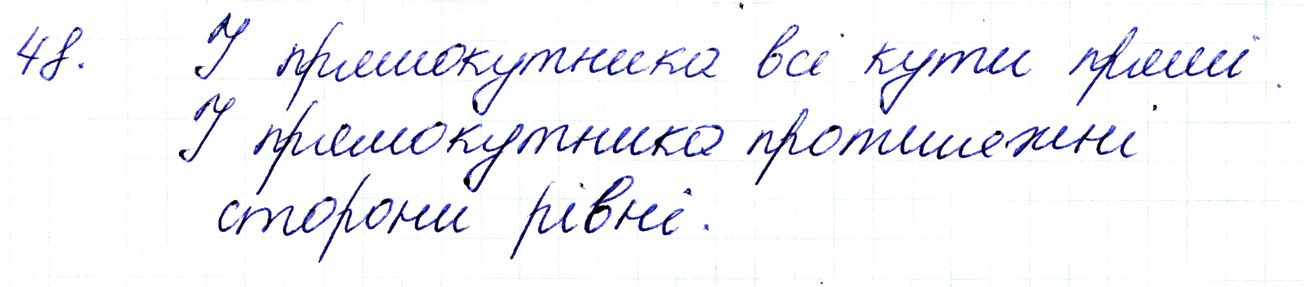 48. У прямокутника всі кути прямі.
У прямокутника протилежні
сторони рівні.